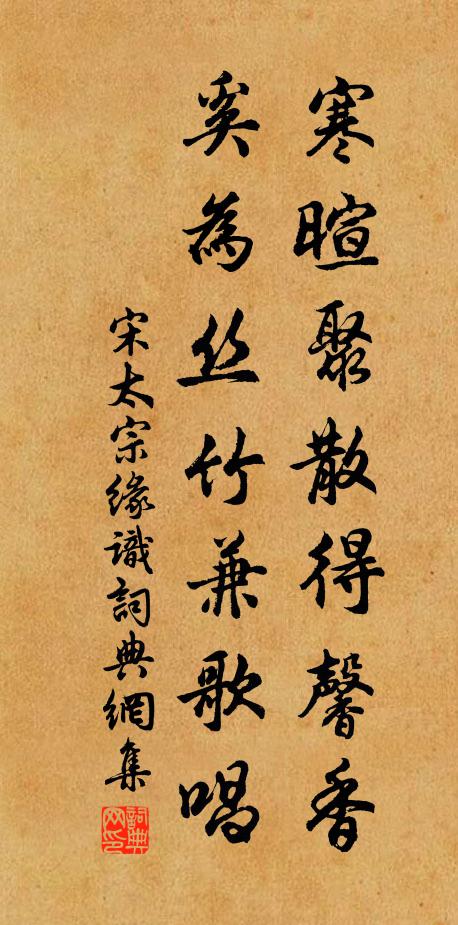 寒暄聚散得馨香
奚為丝竹兼歌唱
宋太宗緣識詞典網集
詞典网印